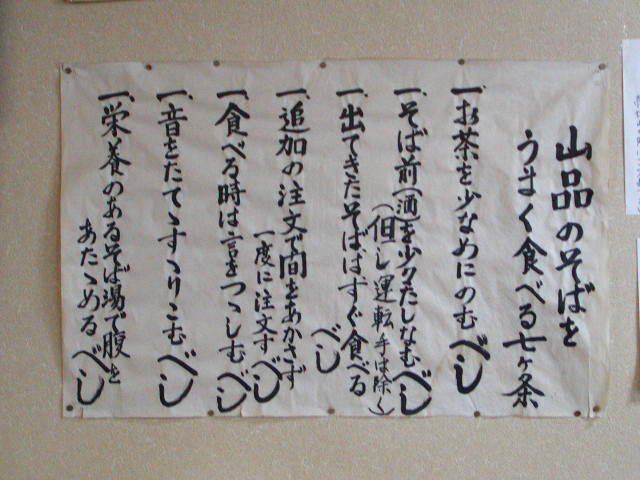 山品のそばを
うまく食べる七ヶ条
一、お茶を少なめにのむべし
一、そば前(酒)を少々たしなむべし
(但し運転手は除く)
一、出てきたそばはすぐ食べる
べし
一、追加の注文で間をあかさず
一度に注文すべし
一、食べる時は言をつゝしむべし
一、音をたてゝすゝりこむべし
一、栄養のあるそば湯で腹を
あたゝめるべし